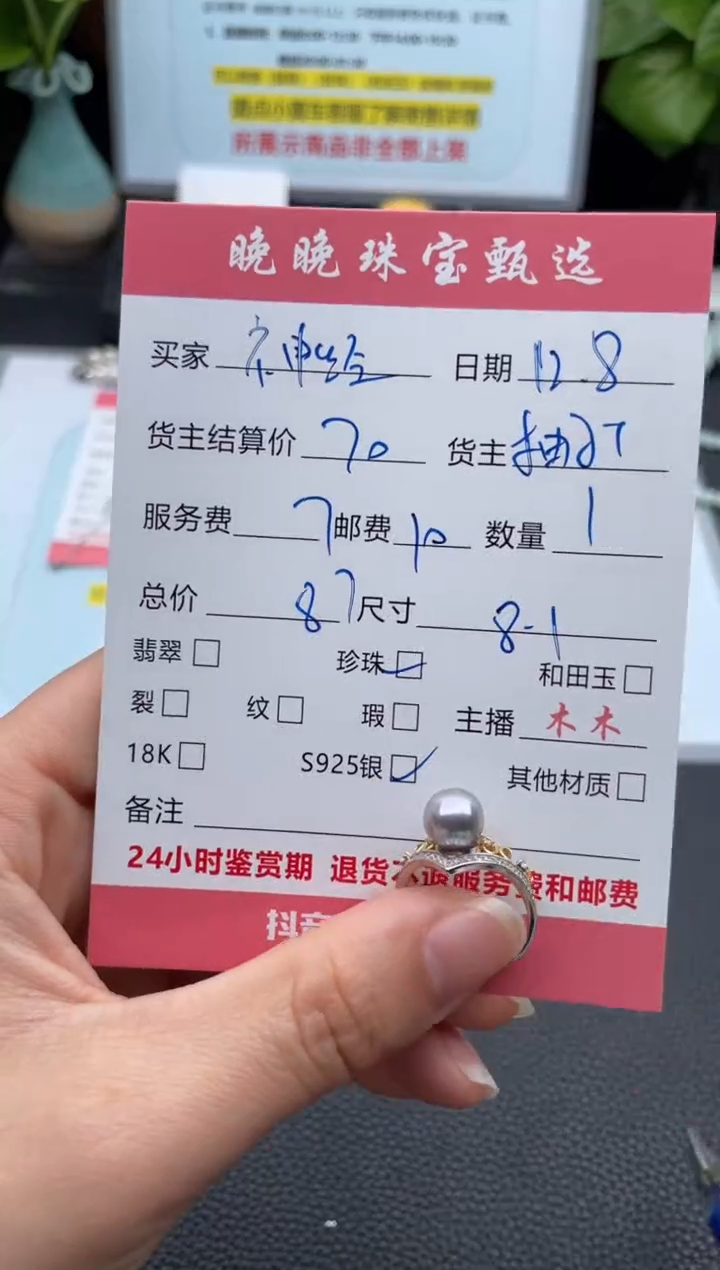 所展示商品非全部上架
晚晚珠宝甄选
买家 日期 12.8
货主结算价 70 货主
服务费 7 邮费 10 数量 1
总价 87 尺寸 8-1
翡翠 珍珠 和田玉
裂 纹 瑕 主播 木木
18K S925银 其他材质
备注
24小时鉴赏期 退货不退服务费和邮费
抖音